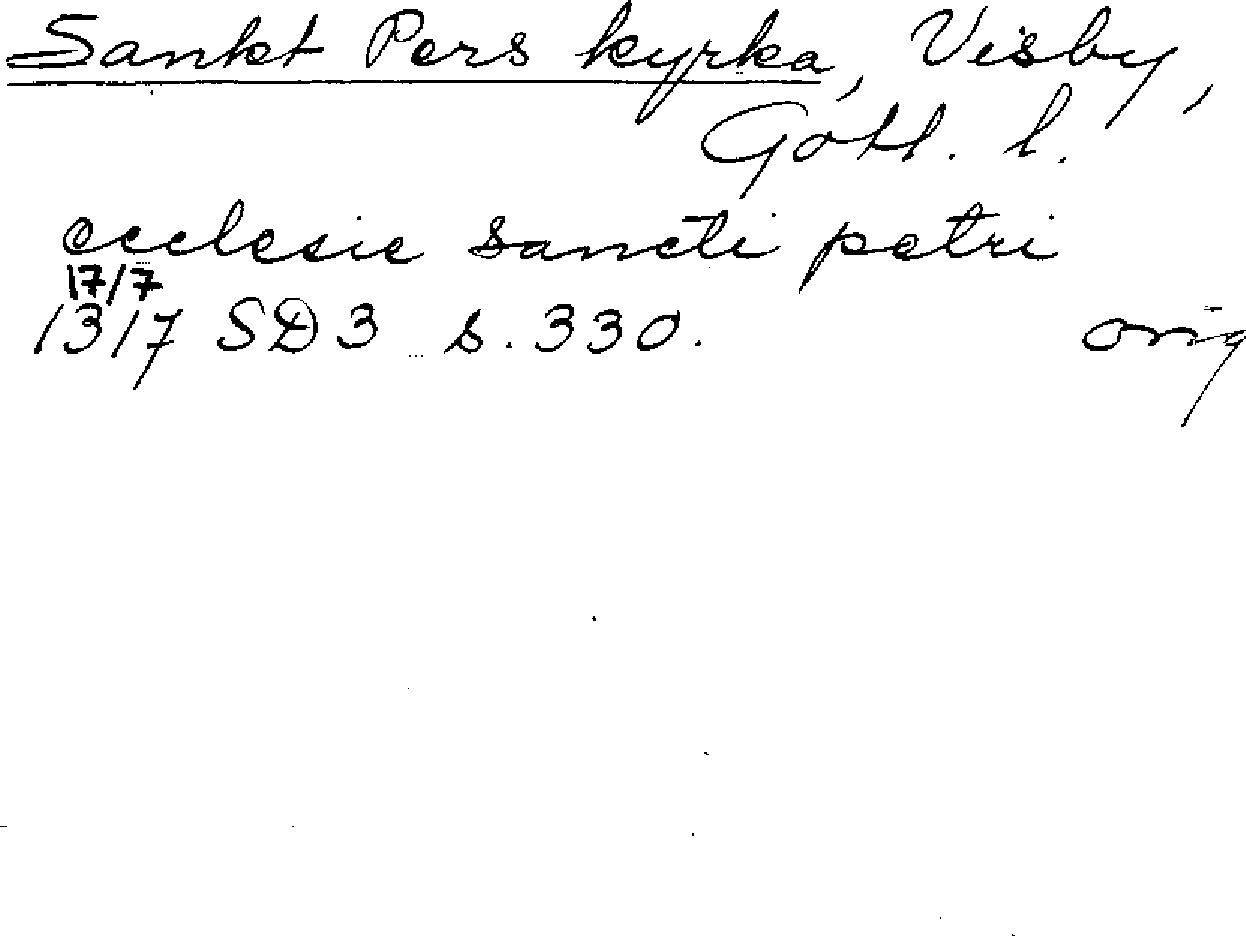 Sankt Pers kyrka, Visby,
Gotl. l.
ecclesie sancti petri
17/7
1317 SD 3 s. 330. orig